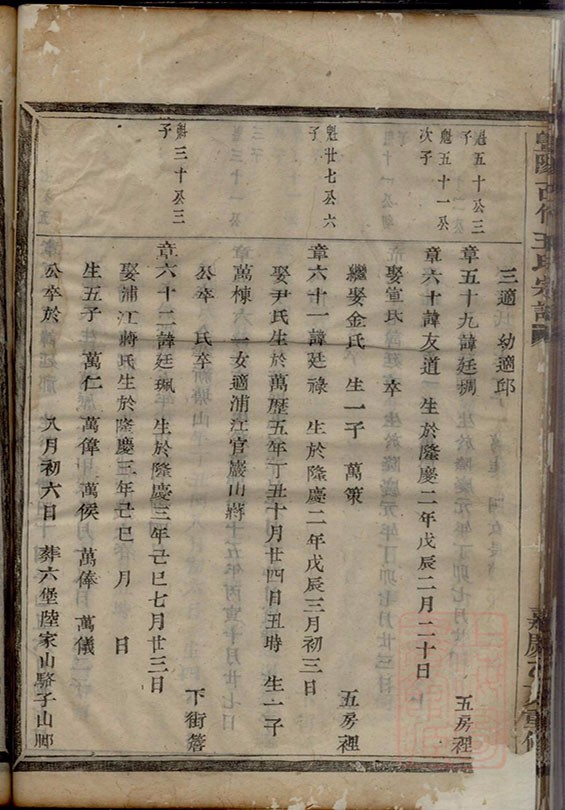 三適　幼適邱
魁五十公三子
章五十九諱廷椆　五房裡
魁五十一公次子
章六十諱友道　生於隆慶二年戊辰二月二十日
娶宣氏　卒
繼娶金氏　生一子　萬策　五房裡
魁廿七公六子
章六十一諱廷祿　生於隆慶二年戊辰三月初三日
娶尹氏生於萬歷五年丁丑十月廿四日丑時　生一子
萬棟　一女適浦江官巖山蔣
公卒　氏卒　下街簷
魁三十公三子
章六十二諱廷珮　生於隆慶三年己巳七月廿三日
娶浦江蔣氏生於隆慶三年己巳　月　日
生五子　萬仁　萬偉　萬侯　萬俸　萬儀
公卒於　八月初六日　葬六堡陸家山駱子山腳
王氏宗譜
嘉慶重修